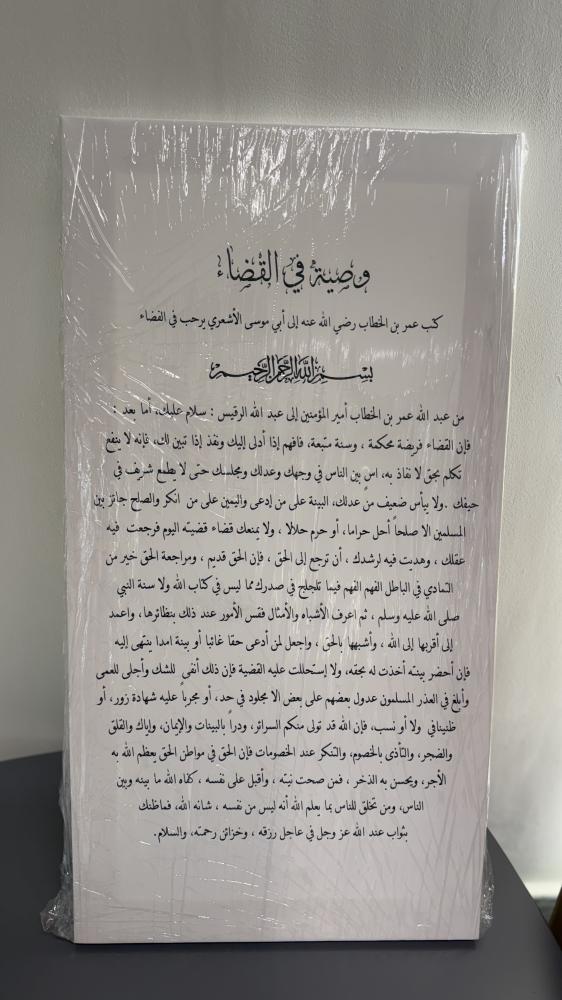 وصية في القضاء
كتب عمر بن الخطاب رضي الله عنه إلى أبي موسى الأشعري يرحب في القضاء
بسم الله الرحمن الرحيم
من عبد الله عمر بن الخطاب أمير المؤمنين إلى عبد الله الرقيس : سلام عليك، أما بعد :
فإن القضاء فريضة محكمة ، وسنة متبعة، فافهم إذا أدلى إليك ونفذ إذا تبين لك، فإنه لا ينفع
تكلم بحق لا نفاذ به، اس بين الناس في وجهك وعدلك ومجلسك حتى لا يطمع شريف في
حيفك .ولا ييأس ضعيف من عدلك، البينة على من إدعى واليمين على من انكر والصلح جائز بين
المسلمين الا صلحاً أحل حراما، أو حرم حلالا ، ولا يمنعك قضاء قضيته اليوم فرجعت فيه
عقلك ، وهديت فيه لرشدك ، أن ترجع إلى الحق ، فإن الحق قديم ، ومراجعة الحق خير من
التمادي في الباطل الفهم الفهم فيما تلجلج في صدرك مما ليس في كتاب الله ولا سنة النبي
صلى الله عليه وسلم ، ثم اعرف الأشباه والأمثال فقس الأمور عند ذلك بنظائرها، واعمد
إلى أقربها إلى الله ، وأشبهها بالحق ، واجعل لمن أدعى حقا غائبا أو بينة امدا ينتهى إليه
فإن أحضر بينته أخذت له بحقه، ولا إستحللت عليه القضية فإن ذلك أنفى للشك وأجلى للعمى
وأبلغ في العذر المسلمون عدول بعضهم على بعض الا مجلود في حد، أو مجرباً عليه شهادة زور، أو
ظنينافي ولا أو نسب، فإن الله قد تولى منكم السرائر، ودرأ بالبينات والإيمان، وإياك والقلق
والضجر، والتأذى بالخصوم، والتنكر عند الخصومات فإن الحق في مواطن الحق يعظم الله به
الأجر، ويحسن به الذخر ، فمن صحت نيته ، وأقبل على نفسه ، كفاه الله ما بينه وبين
الناس، ومن تخلق للناس بما يعلم الله أنه ليس من نفسه ، شانه الله، فماظنك
بثواب عند الله عز وجل في عاجل رزقه ، وخزائن رحمته، والسلام.